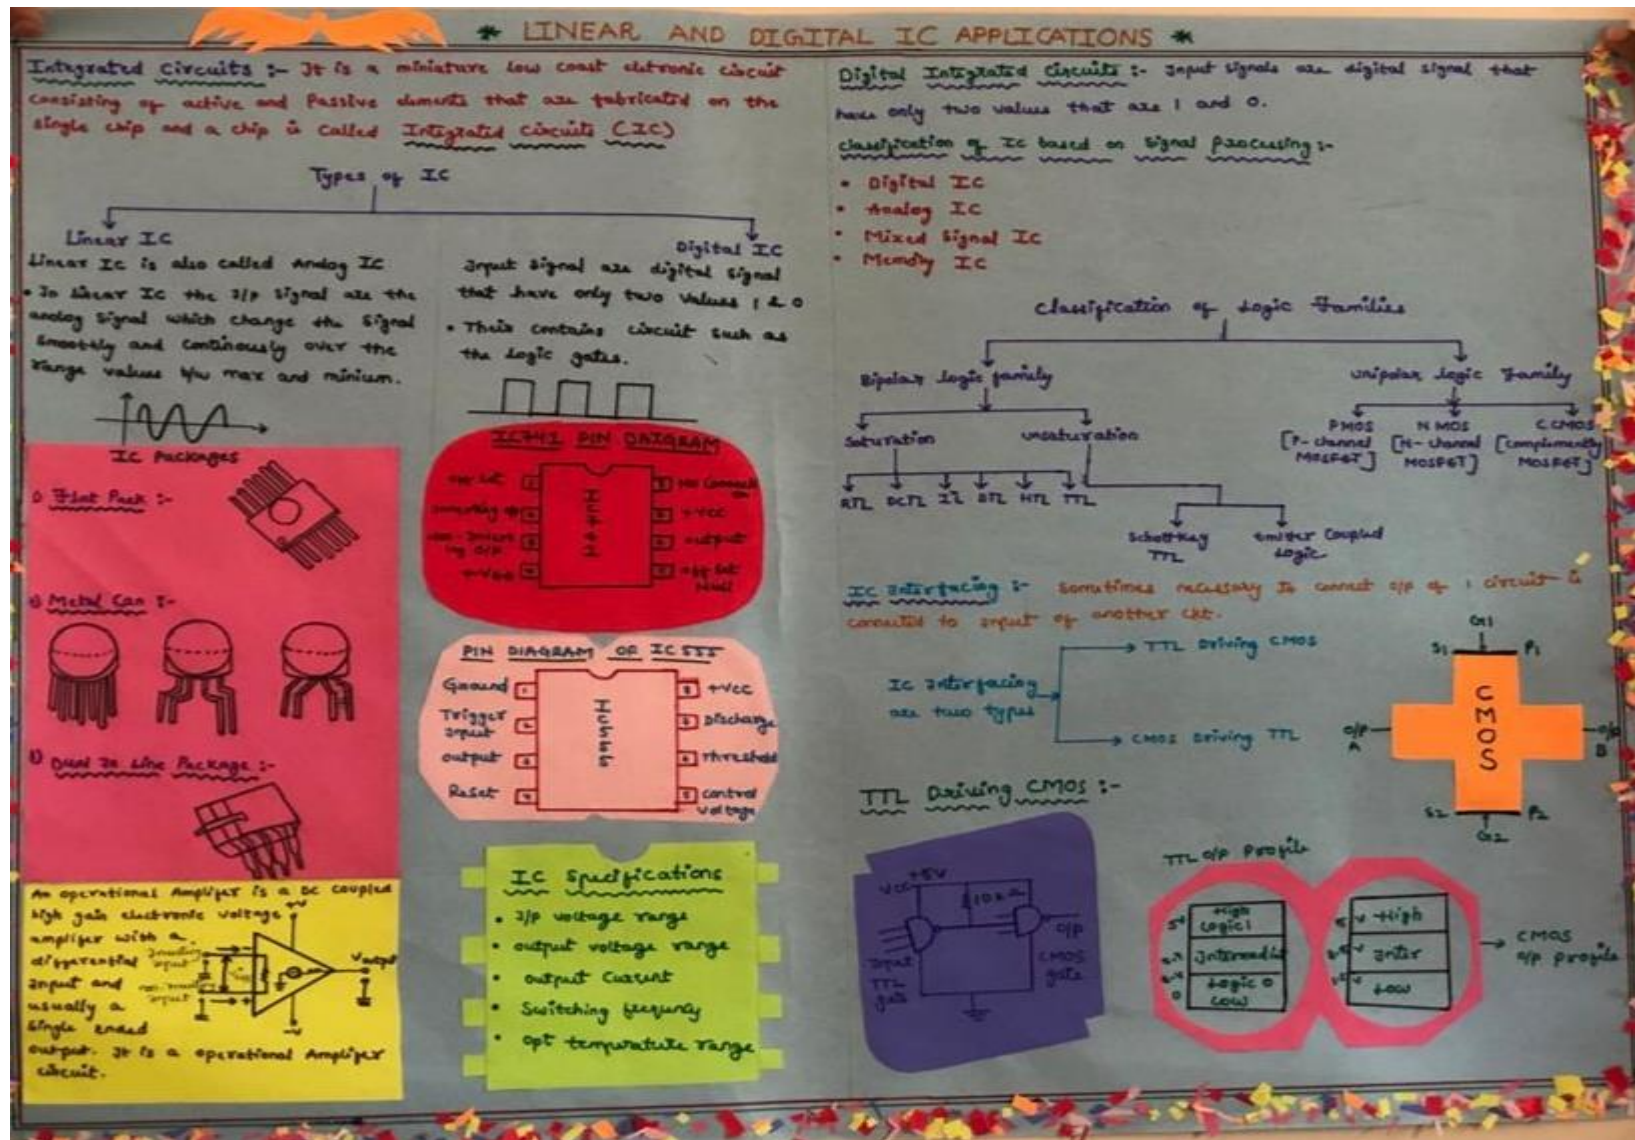 * LINEAR AND DIGITAL IC APPLICATIONS *
Integrated Circuits :- It is a miniature low coast eletronic circuit
consisting of active and Passive elements that are fabricated on the
single chip and a chip is called Integrated circuits (IC)
Types of IC
Linear IC
Linear IC is also called Analog IC
• In linear IC the I/p signal are the
analog signal which change the signal
smoothly and continously over the
range values b/w max and minium.
Digital IC
Input signal are digital signal
that have only two values 1 & 0
• Their contains circuit such as
the logic gates.
IC Packages
Flat Pack :-
Metal Can :-
Dual In Line Package :-
An operational Amplifer is a DC coupled
high gain electronic voltage
amplifer with a
differential
input and
usually a
single ended
output. It is a operational Amplifer
circuit.
+V
-V
IC741 PIN DAIGRAM
No Connecti
on
+VCC
output
off set
Null
IC741
PIN DIAGRAM OF IC 555
Ground 1
Trigger
input 2
output 3
Reset 4
IC555
8 +VCC
7 Discharge
6 Threshold
5 control
voltage
IC Specifications
• I/p voltage range
• output voltage range
• output Current
• Switching frequncy
• opt tempurature range
Digital Integrated Circuits :- Input signals are digital signal that
have only two values that are 1 and 0.
classification of IC based on signal processing :-
• Digital IC
• Analog IC
• Mixed Signal IC
• Memory IC
classification of Logic Families
Bipolar logic family
unipolar logic Family
Saturation
unsaturation
PMOS
[P-channel
MOSFET]
N MOS
[N-channel
MOSFET]
CCMOS
[complemently
MOSFET]
RTL DCTL HTL TTL
Schottkey
TTL
Emitter Coupled
Logic
IC Interfacing :- Sometimes necessary to connect o/p of 1 circuit is
connected to input of another ckt.
IC Interfacing
are two types
TTL Driving CMOS
CMOS Driving TTL
G1
S1 P1
CMOS
o/p
A
o/p
B
S2 P2
G2
TTL Driving CMOS :-
+5V
VCC
10KΩ
o/p
Input
TTL
gate
CMOS
gate
TTL o/p profile
High
Logic 1
Logic 0
Low
High
Inter
Low
CMOS
o/p profile